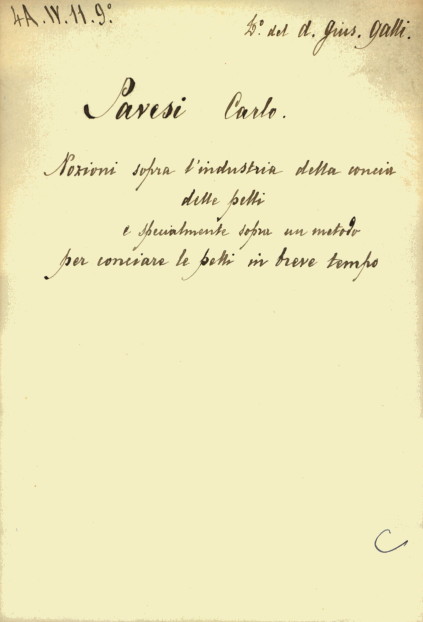 4A.IV.11.9°
D.° del d. Gius. Galli.
Pavesi Carlo.
Nozioni sopra l'industria della concia
delle pelli
e specialmente sopra un metodo
per conciare le pelli in breve tempo